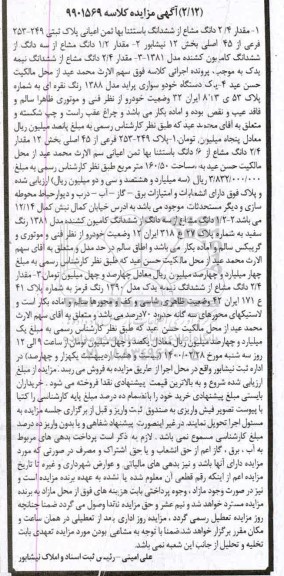 (۲/۱۲) آگهی مزایده کلاسه ۹۹۰۱۵۶۹
۱- مقدار ۲/۴ دانگ مشاع از ششدانگ باستثنا بها ثمن اعیانی پلاک ثبتی ۲۴۹-۲۵۳
فرعی از ۴۵ اصلی بخش ۱۲ نیشابور ۲- مقدار ۱/۲ دانگ مشاع از سه دانگ از
ششدانگ کامیون کشنده مدل ۱۳۸۱ ۳- مقدار ۲/۴ دانگ مشاع از ششدانگ نیمه
یدک به موجب پرونده اجرائی کلاسه فوق سهم الارث محمد عید از محل مالکیت
حسن عید ۴-یک دستگاه خودو سواری پراید مدل ۱۳۸۸ رنگ نقره ای به شماره
پلاک ۵۳ ی ۸۱۳ ایران ۳۲ وضعیت خودرو از نظر فنی و موتوری ظاهرا سالم و
فاقد عیب و نقص بوده و آماده بکار می باشد و چراغ عقب راست و چپ شکسته و
متعلق به آقای محمد عید که طبق نظر کارشناس رسمی به مبلغ پانصد میلیون ریال
معادل پنجاه میلیون تومان ۱-پلاک ۲۴۹-۲۵۳ فرعی از ۴۵ اصلی بخش ۱۲ مقدار
۲/۴ دانگ مشاع از ۶ دانگ باستثنا بها ثمن اعیانی سم الارث محمد عید از محل
مالکیت حسن عید به مساحت ۱۶۰/۵۰ متر مربع طبق نظر کارشناس رسمی به مبلغ
۳/۸۳۲/۰۰۰/۰۰۰ ریال (سه میلیارد و هشتصد و سی و دو میلیون ریال) ارزیابی شده
و پلاک فوق دارای انشعابات و امتیازات برق - گاز - آب - درب و دیوار حیاط محوطه
سازی و دیگر مستحدثات، موجود می باشد به آدرس خیابان کمال نبش کمال ۱۲/۱۴
می باشد ۲-۱/۲ دانگ مشاع از سه دانگ از ششدانگ کامیون کشنده مدل ۱۳۸۱ رنگ
سفید به شماره پلاک ۲۷ ع ۳۱۸ ایران ۱۲ وضعیت خودرو از نظر فنی و موتوری و
گیربکس سالم و آماده بکار می باشد و اطاق سالم در حد مدل و متعلق به آقای سهم
الارث محمد عید از محل مالکیت حسن عید که طبق نظر کارشناس رسمی به مبلغ
چهار میلیارد و چهارصد میلیون ریال معادل چهارصد و چهل میلیون تومان ۳- مقدار
۲/۴ دانگ مشاع از ششدانگ نیمه یدک مدل ۱۳۹۰ رنگ قرمز به شماره پلاک ۴۱
ع ۱۷۱ ایران ۴۲ وضعیت ظاهری شاسی و کف و محورها سالم و آماده بکار است و
لاستیکهای محورهای سه گانه حدود ۷۰درصد می باشد و متعلق به آقای سهم الارث
محمد عید از محل مالکیت حسن عید که طبق نظر کارشناس رسمی به مبلغ یک
میلیارد و چهارصد میلیون ریال معادل یکصد و چهل میلیون تومان از ساعت ۹ الی ۱۲
روز سه شنبه مورخ ۱۴۰۰/۰۲/۲۸ (بیست و هشتم اردیبهشت یکهزار و چهارصد) در
اداره ثبت نیشابور واقع در محل اجرا از طریق مزایده به فروش می رسد. مزایده از مبلغ
ارزیابی شده شروع و به بالاترین قیمت پیشنهادی نقدا فروخته می شود. خریداران
بایستی مبلغ پیشنهادی خرید خود را بانضمام ده درصد مبلغ پایه کارشناسی را کتبا
با پیوست تصویر فیش واریزی به صندوق ثبت واریز و قبل از برگزاری جلسه مزایده به
مسئول اجرا تحویل نمایند. در غیر اینصورت پیشنهاد شفاهی و یا بدون واریز ده درصد
مبلغ کارشناسی مسموع نمی باشد. لازم به ذکر است پرداخت بدهی های مربوط
به آب ، برق ، گاز اعم از حق انشعاب و یا حق اشتراک و مصرف در صورتی که مورد
مزایده دارای آنها باشد و نیز بدهی های مالیاتی و عوارض شهرداری و غیره تا تاریخ
مزایده اعم از اینکه رقم قطعی آن معلوم شده یا نشده به عهده برنده مزایده است و
نیز در صورت وجود مازاد، وجوه پرداختی بابت هزینه های فوق از محل مازاد به برنده
مزایده مسترد خواهد شد و نیم عشر و حق مزایده نقدا وصول می گردد ضمنا چنانچه
روز مزایده تعطیل رسمی گردد ، مزایده روز اداری بعد از تعطیلی در همان ساعت و
مکان مقرر برگزار خواهد شد.ضمنا با توجه به مشاعی بودن مورد مزایده تعهدی بابت
تخلیه و تحلیل از جانب این شعبه نمی باشد.
علی امینی - رئیس ثبت اسناد و املاک نیشابور